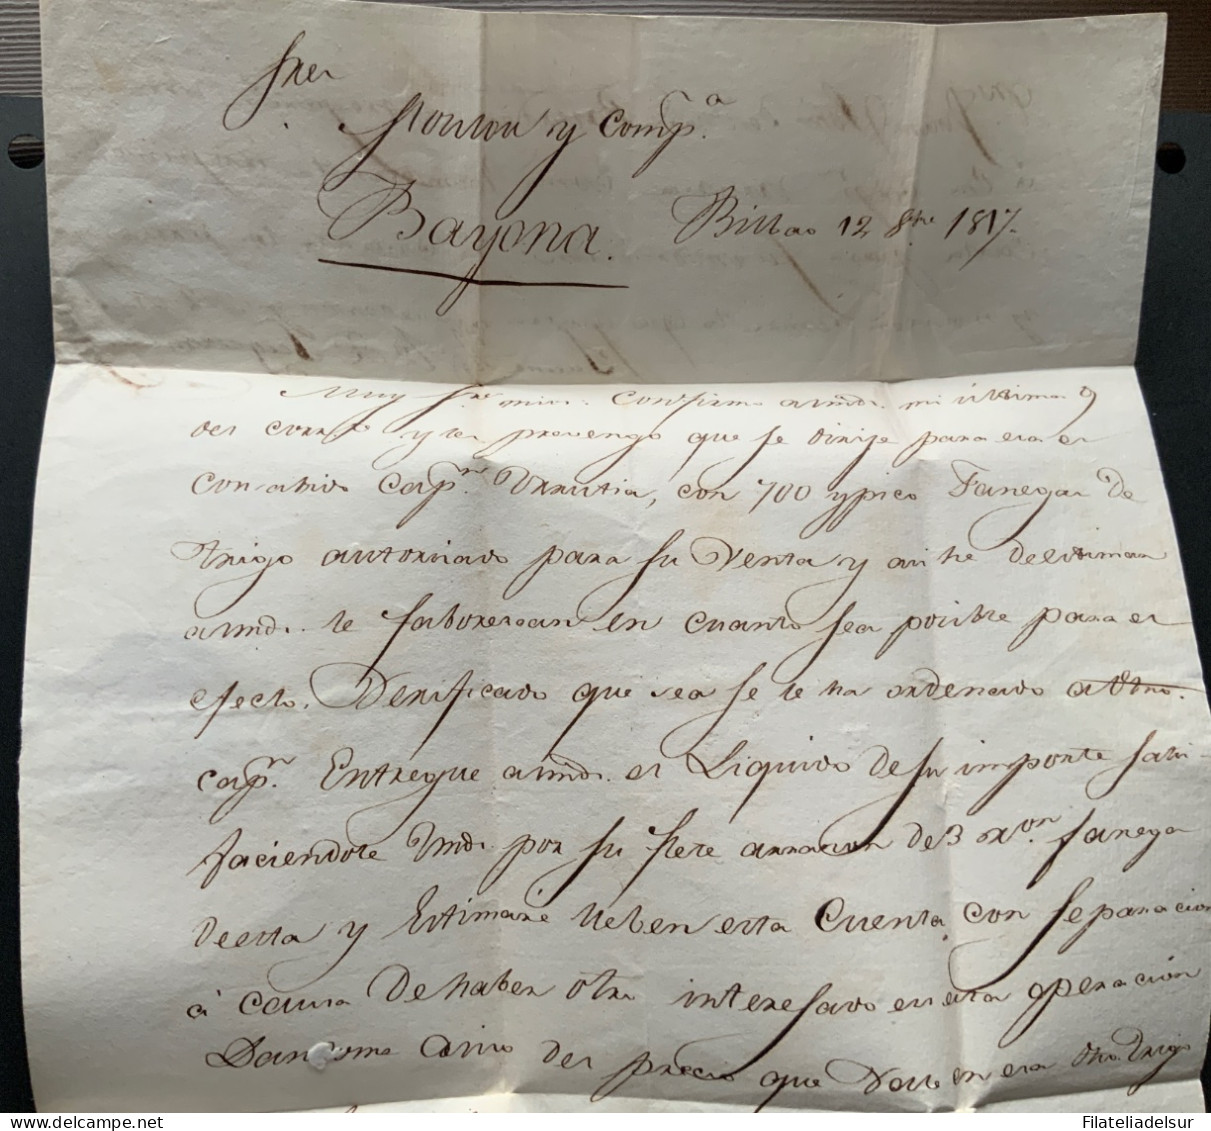 Sres
y Comp.ª
Bayona. Bilbao 12 8bre 1817.
Muy Sres mios. Confirmo a Vmds. mi última 9
del corrte y les prevengo que se dirije para esa el
con abiso Capn. Urrutia, con 700 y pico Fanegas de
trigo autorisado para su Venta y asi he de estimar
a Vmds. le faborescan en cuanto sea posible para el
efecto. Verificado que sea se le ha ordenado a dho.
capn. Entregue a Vmds. el Liquido de su importe satis-
faciendole Vmds. por su flete a razon de 3 rn. fanega
de esta y Estimaré lleben esta Cuenta con separacion
à causa de haber otro interesado en esta operación
Dandome Aviso del precio que Vale en esa dho. trigo
Filateliadelsur.com
Filateliadelsur